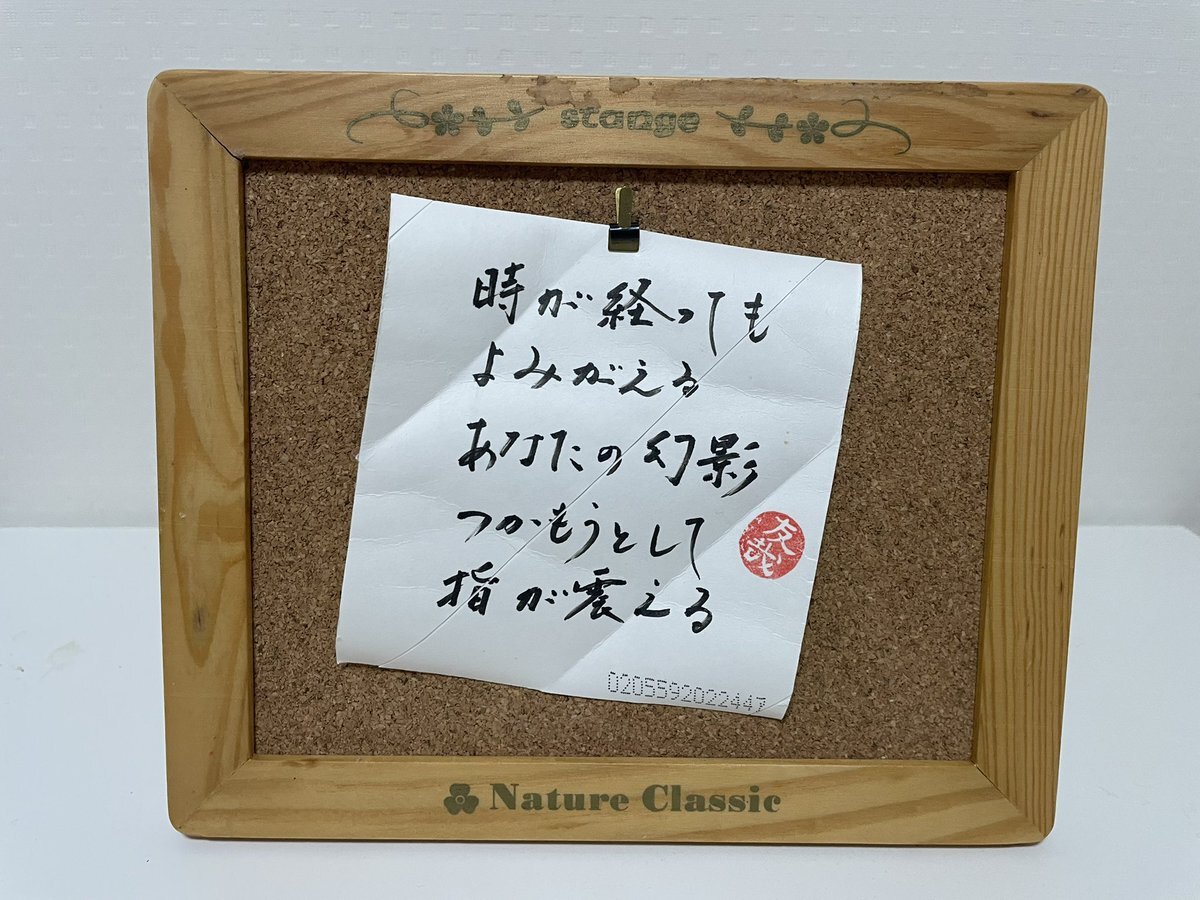 stange
時が経っても
よみがえる
あなたの幻影
つかもうとして
指が震える
友哉
0205592022447
Nature Classic